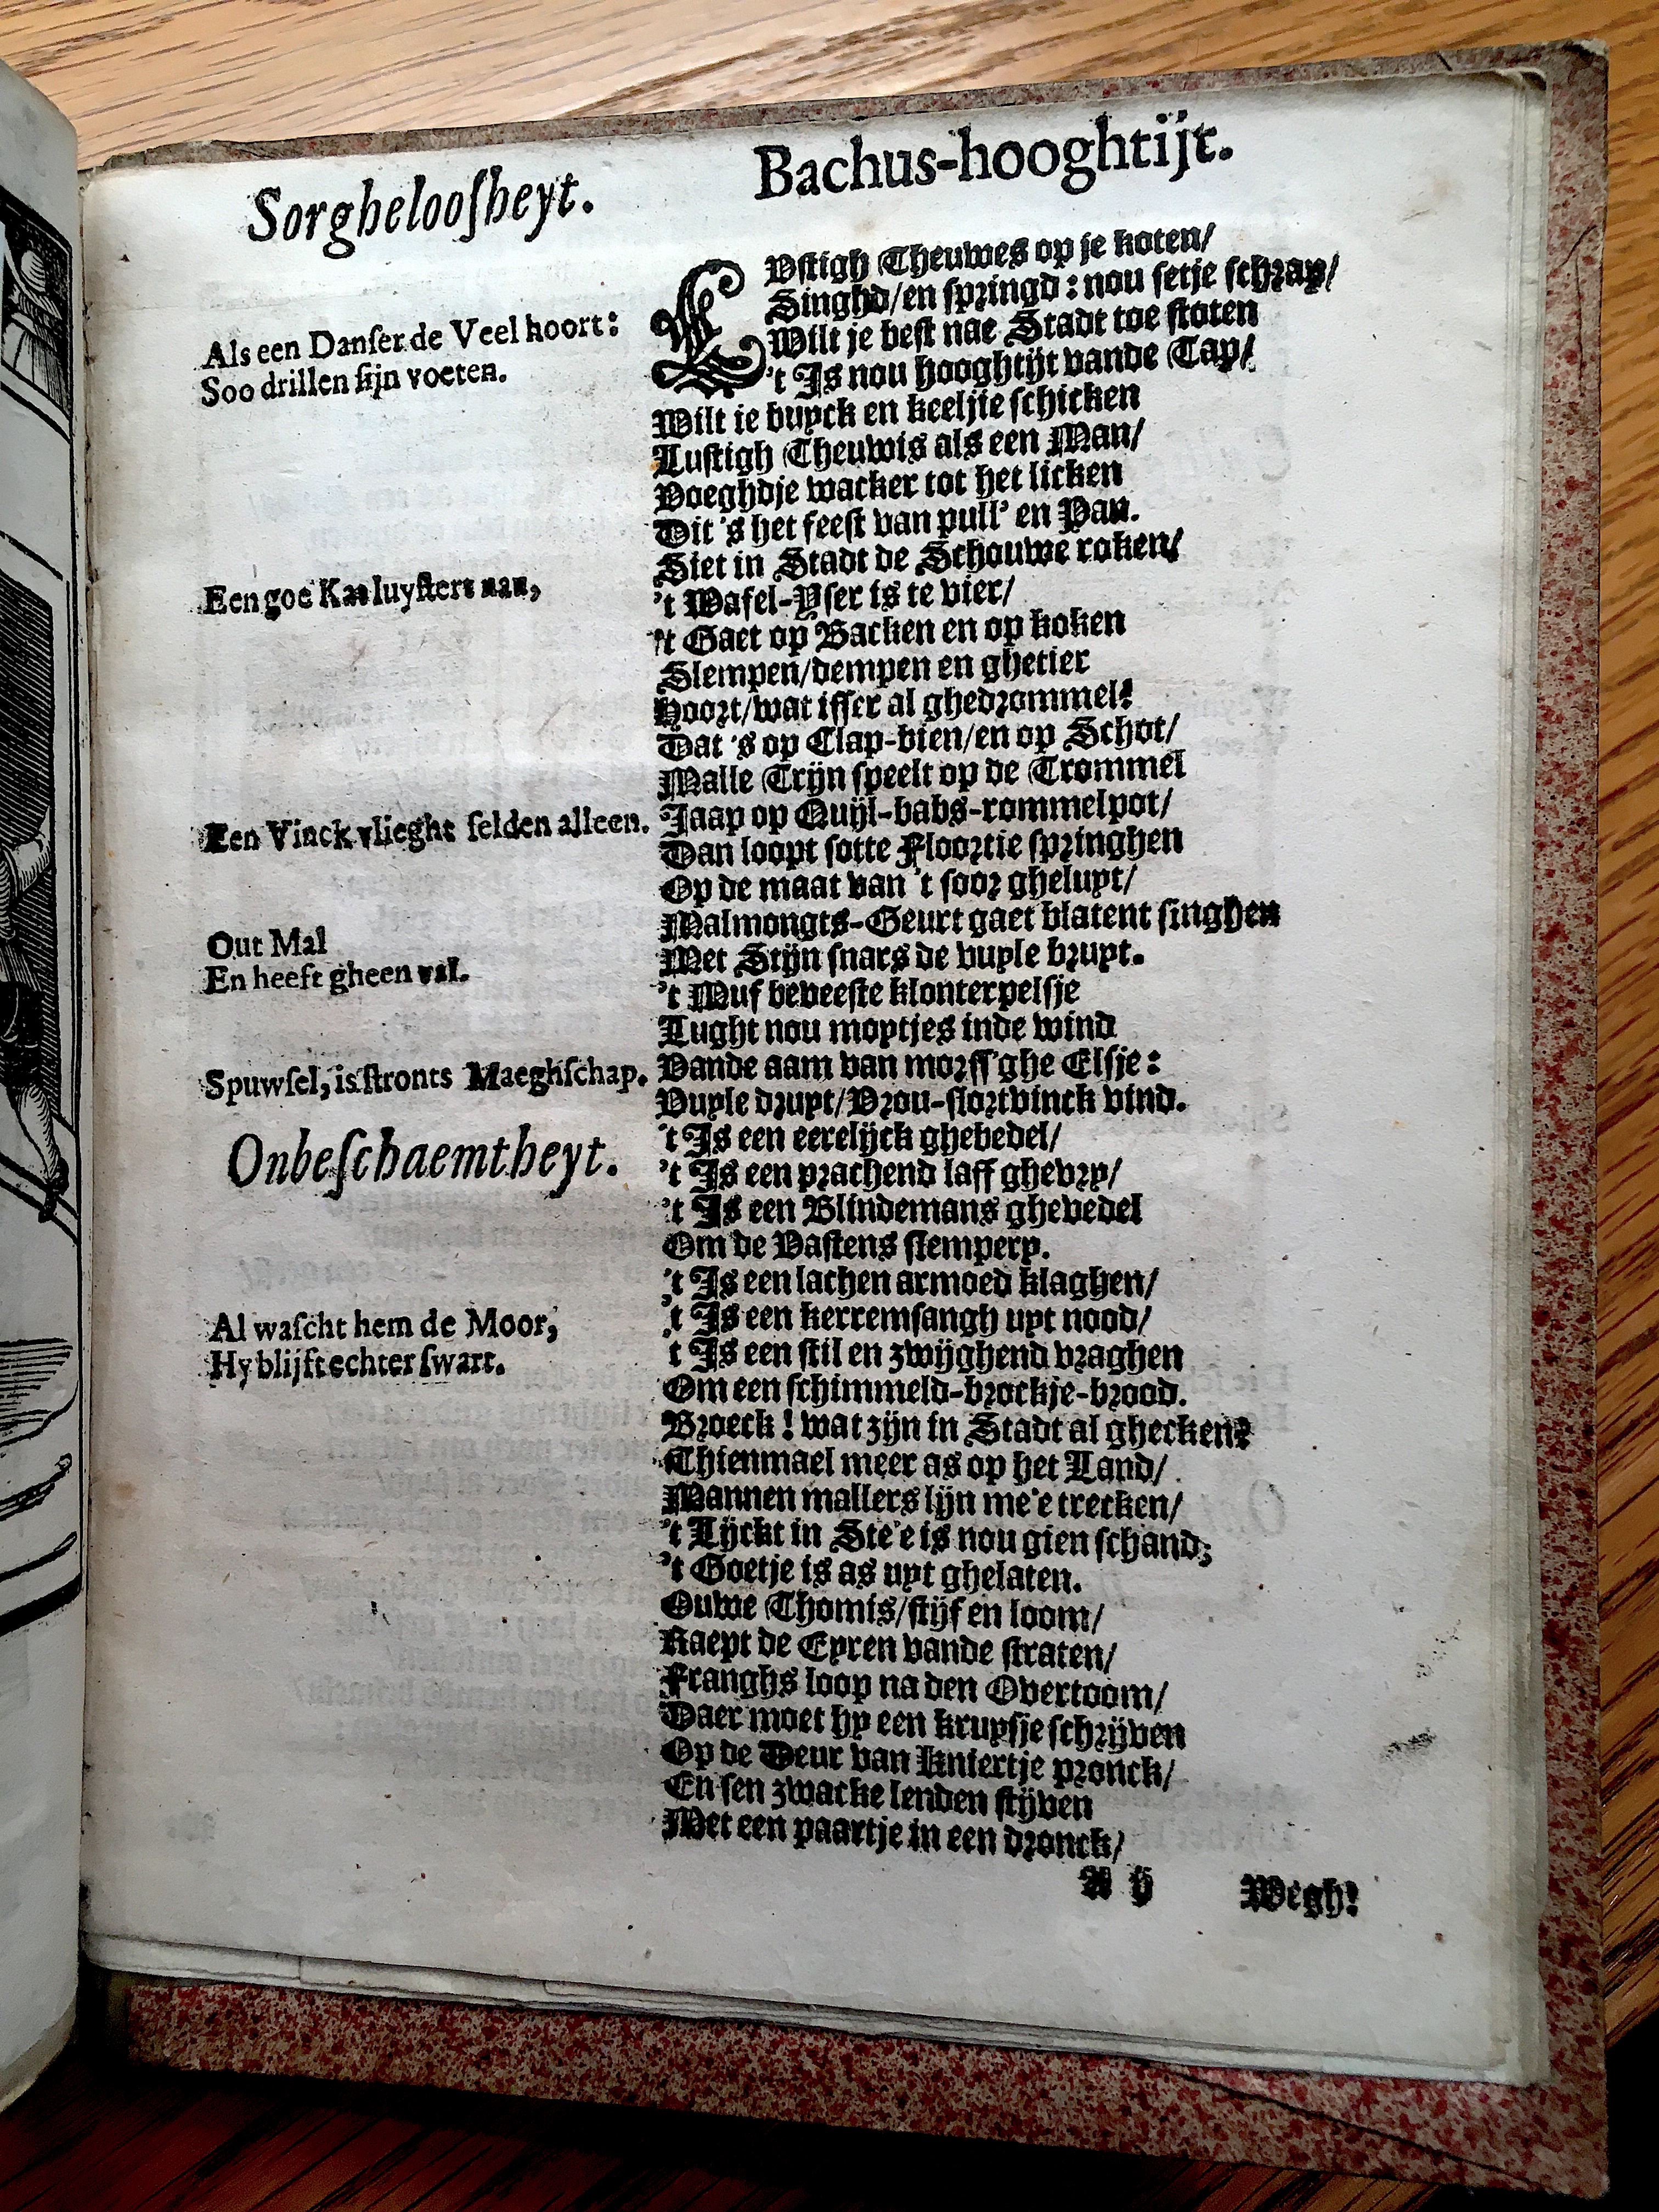 Sorgheloosheyt.
Als een Danser de Veel hoort:
Soo drillen sijn voeten.
Een goe Kat luystert nau,
Een Vinck vlieght selden alleen.
Out Mal
En heeft gheen val.
Spuwsel, is stronts Maeghschap.
Onbeschaemtheyt.
Al wascht hem de Moor,
Hy blijft echter swart.
Bachus-hooghtijt.
LVstigh Theuwes op je koten/
Singhd/en springd: nou setje schrap/
Wilt je best nae Stadt toe stoten
't Is nou hooghtijt vande Tap/
Wilt je buyck en keeljie schicken
Lustigh Theuwis als een Man/
Voeghdje wacker tot het licken
Dit 's het feest van pull' en Pan.
Siet in Stadt de Schouwe roken/
't Wafel-Yser is te vier/
't Gaet op Backen en op koken
Slempen/dempen en ghetier
Hoort/wat isser al ghedrommel?
Dat 's op Clap-bien/en op Schot/
Malle Trijn speelt op de Trommel
Jaap op Quijl-babs-rommelpot/
Dan loopt sotte Floortie springhen
Op de maat van 't soor gheluyt/
Malmongts-Geurt gaet blatent singhen
Met Stijn snars de vuyle bruyt.
't Muf beveeste klonterpelsje
Lught nou moptjes inde wind
Vande aam van mors'ghe Elsje:
Vuyle druyt/Vrou-slortvinck vind.
't Is een eerelijck ghebedel/
't Is een prachend laff ghevry/
't Is een Blindemans ghevedel
Om de Vastens slempery.
't Is een lachen armoed klaghen/
't Is een kerremsangh uyt nood/
't Is een stil en zwijghend vraghen
Om een schimmeld-brockje-brood.
Broeck! wat zijn in Stadt al ghecken?
Thienmael meer as op het Land/
Mannen mallers lijn me'e trecken/
't Lijckt in Ste'e is nou gien schand;
't Goetje is as uyt ghelaten.
Ouwe Thomis/stijf en loom/
Raept de Eyren vande straten/
Franghs loop na den Overtoom/
Daer moet hy een kruysje schrijven
Op de Deur van Kniertje pronck/
En sen zwacke lenden stijven
Met een paartje in een dronck/
A ij
Wegh!